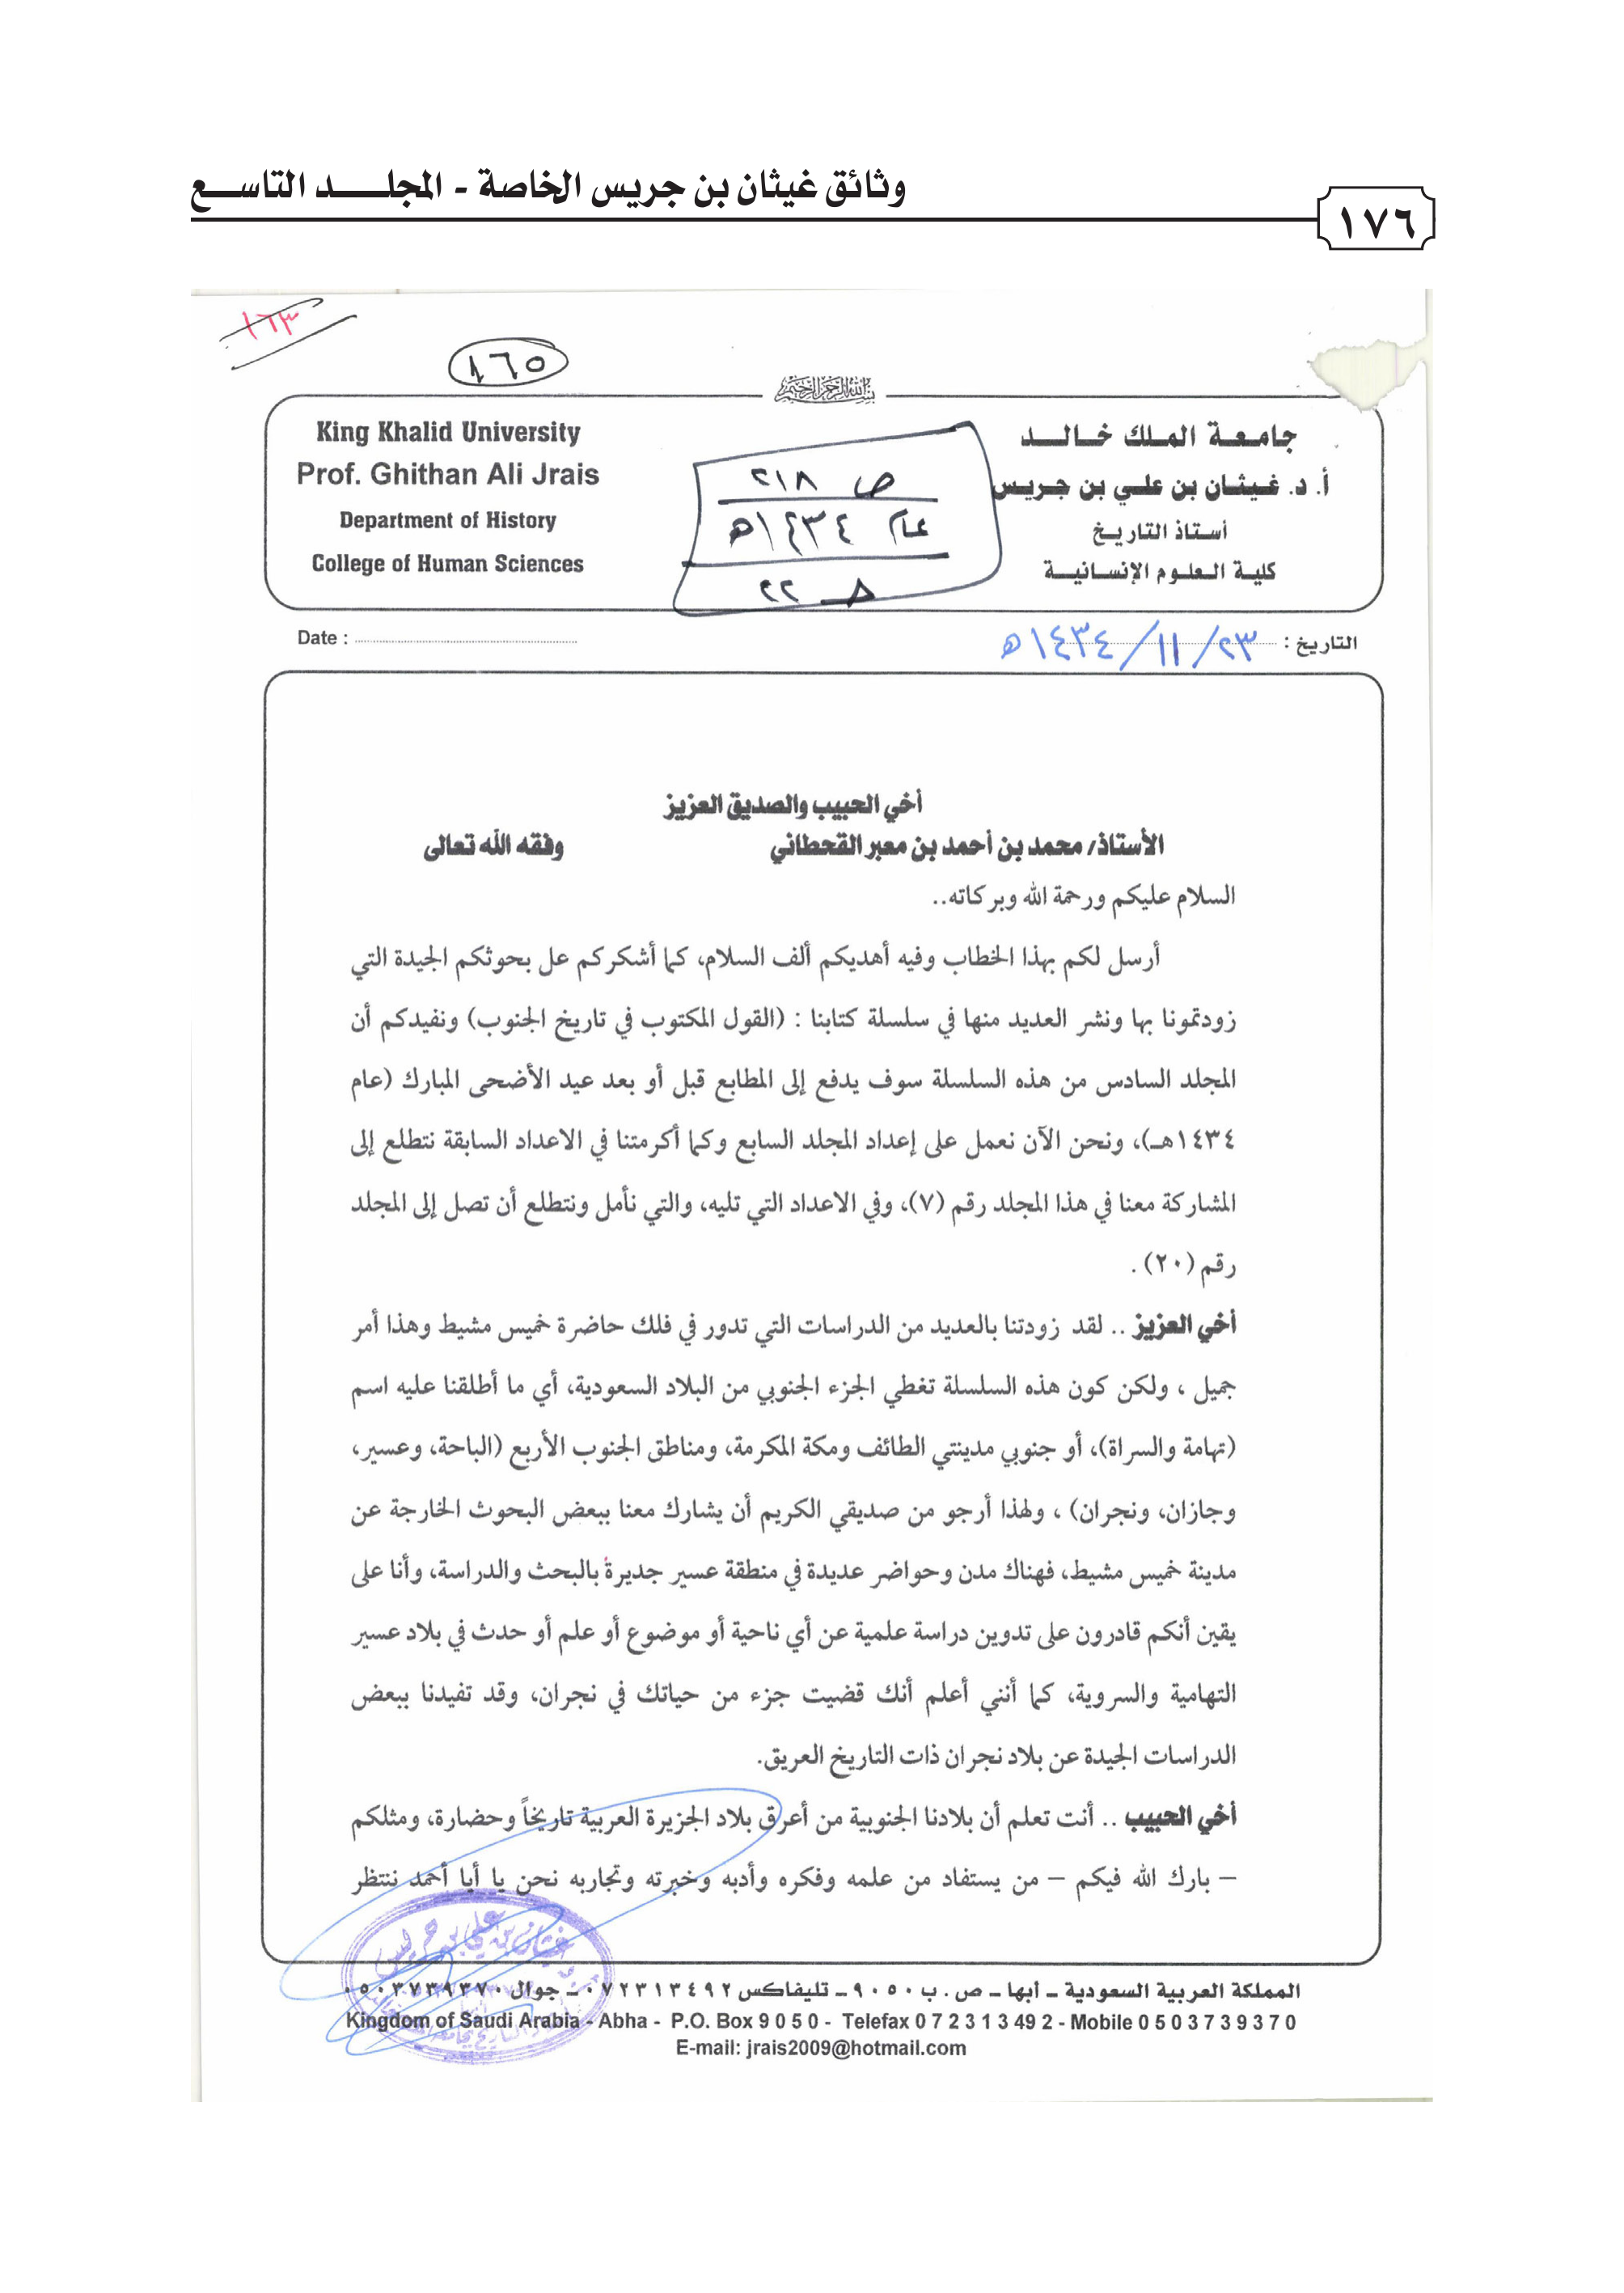 وثائق غيثان بن جريس الخاصة - المجلـــــد التاســـع
١٧٦
١٦٣
١٦٥
بسم الله الرحمن الرحيم
King Khalid University
Prof. Ghithan Ali Jrais
Department of History
College of Human Sciences
ص ٢١٨
عام ١٤٣٤هـ
جامعة الملك خالد
أ. د. غيثان بن علي بن جريس
أستاذ التاريخ
كلية العلوم الإنسانية
Date :
التاريخ : ٢٣/ ١١/ ١٤٣٤هـ
أخي الحبيب والصديق العزيز
الأستاذ/ محمد بن أحمد بن معبر القحطاني وفقه الله تعالى
السلام عليكم ورحمة الله وبركاته..
أرسل لكم بهذا الخطاب وفيه أهديكم ألف السلام، كما أشكركم عل بحوثكم الجيدة التي
زودتمونا بها ونشر العديد منها في سلسلة كتابنا : (القول المكتوب في تاريخ الجنوب) ونفيدكم أن
المجلد السادس من هذه السلسلة سوف يدفع إلى المطابع قبل أو بعد عيد الأضحى المبارك (عام
١٤٣٤هـ)، ونحن الآن نعمل على إعداد المجلد السابع وكما أكرمتنا في الاعداد السابقة نتطلع إلى
المشاركة معنا في هذا المجلد رقم (٧)، وفي الاعداد التي تليه، والتي نأمل ونتطلع أن تصل إلى المجلد
رقم (٢٠) .
أخي العزيز .. لقد زودتنا بالعديد من الدراسات التي تدور في فلك حاضرة خميس مشيط وهذا أمر
جميل ، ولكن كون هذه السلسلة تغطي الجزء الجنوبي من البلاد السعودية، أي ما أطلقنا عليه اسم
(تهامة والسراة)، أو جنوبي مدينتي الطائف ومكة المكرمة، ومناطق الجنوب الأربع (الباحة، وعسير،
وجازان، ونجران) ، ولهذا أرجو من صديقي الكريم أن يشارك معنا ببعض البحوث الخارجة عن
مدينة خميس مشيط، فهناك مدن وحواضر عديدة في منطقة عسير جديرة بالبحث والدراسة، وأنا على
يقين أنكم قادرون على تدوين دراسة علمية عن أي ناحية أو موضوع أو علم أو حدث في بلاد عسير
التهامية والسروية، كما أنني أعلم أنك قضيت جزء من حياتك في نجران، وقد تفيدنا ببعض
الدراسات الجيدة عن بلاد نجران ذات التاريخ العريق.
أخي الحبيب .. أنت تعلم أن بلادنا الجنوبية من أعرق بلاد الجزيرة العربية تاريخاً وحضارة، ومثلكم
– بارك الله فيكم – من يستفاد من علمه وفكره وأدبه وخبرته وتجاربه نحن يا أبا أحمد ننتظر
المملكة العربية السعودية – أبها – ص . ب ٩٠٥٠ – تليفاكس ٠٧٢٣١٣٤٩٢ – جوال ٠٥٠٣٧٣٩٣٧٠
Kingdom of Saudi Arabia - Abha - P.O. Box 9 0 5 0 - Telefax 0 7 2 3 1 3 49 2 - Mobile 0 5 0 3 7 3 9 3 7 0
E-mail: jrais2009@hotmail.com